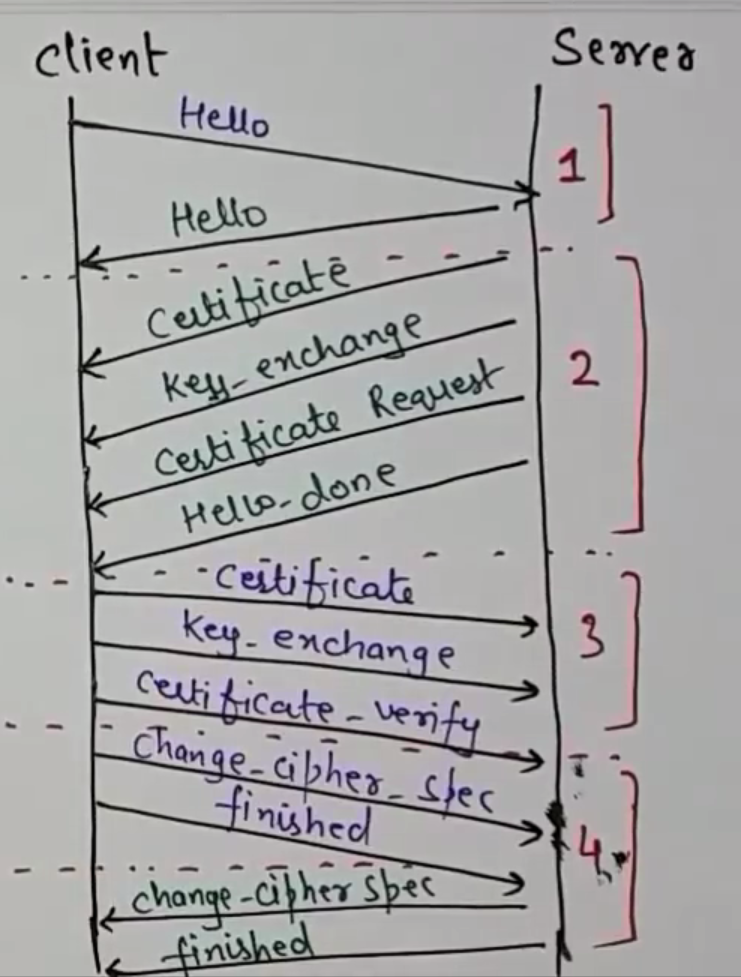 Client
Server
Hello
1
Hello
Certificate
Key-exchange
2
Certificate Request
Hello-done
Certificate
Key-exchange
3
Certificate-verify
Change-cipher-spec
finished
4
change-cipher spec
finished